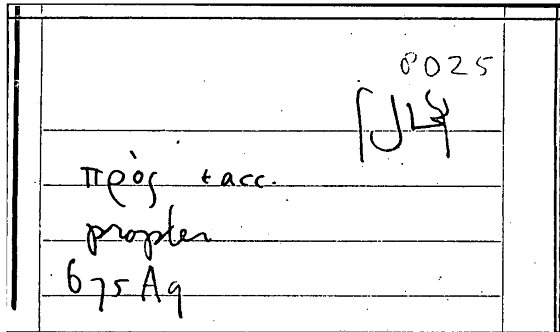 8025
πρὸς + acc.
propter
675 A9